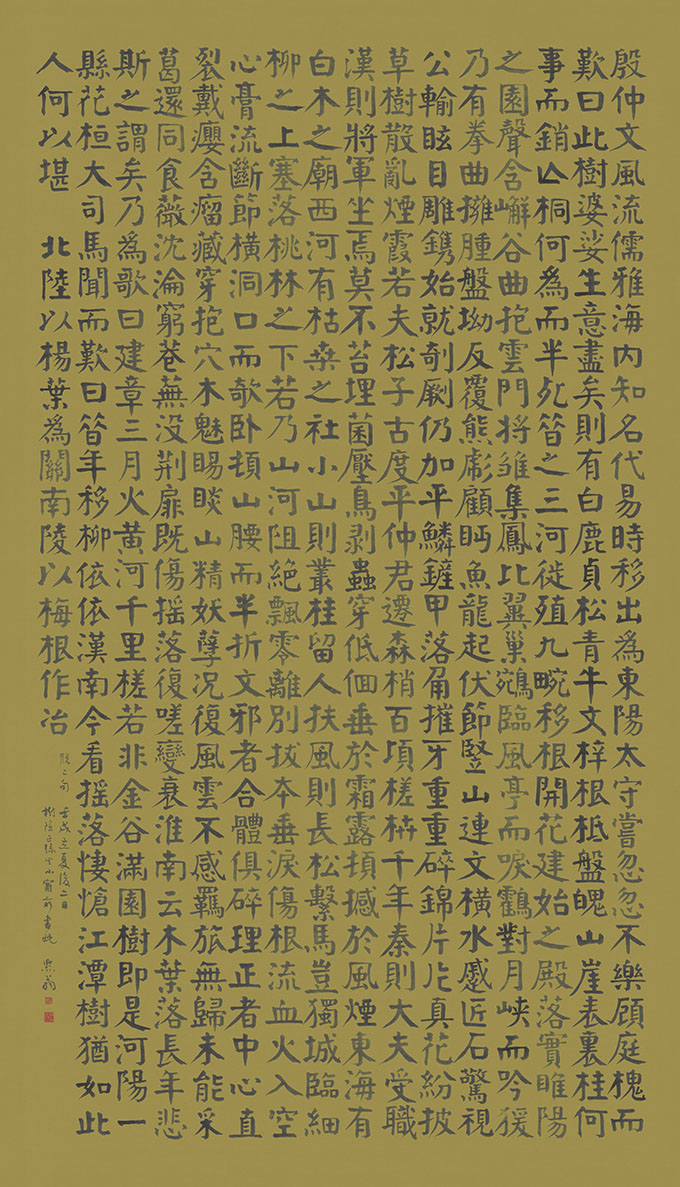 殷仲文風流儒雅海内知名代易時移出為東陽太守嘗忽忽不樂顧庭槐而
歎曰此樹婆娑生意盡矣則有白鹿貞松青牛文梓根柢盤魄山崖表裏桂何
事而銷亾桐何為而半死昔之三河徙殖九畹移根開花建始之殿落實睢陽
之園聲含嶰谷曲抱雲門将雛集鳳比翼巢鵷臨風亭而唳鸖對月峡而吟猨
乃有拳曲擁腫盤坳反覆熊彪顧眄魚龍起伏節竪山連文橫水蹙匠石驚視
公輸眩目雕鐫始就剞劂仍加平鱗鏟甲落角摧牙重重碎錦片片真花紛披
草樹散亂煙霞若夫松子古度平仲君遷森梢百頃槎枿千年秦則大夫受職
漢則將軍坐焉莫不苔埋菌壓鳥剥蟲穿低佪垂於霜露頓撼於風煙東海有
白木之廟西河有枯桒之社小山則叢桂留人扶風則長松繫馬豈獨城臨細
柳之上塞落桃林之下若乃山河阻絶飄零離別拔本垂淚傷根流血火入空
心膏流斷節橫洞口而欹卧頓山腰而半折文邪者合體俱碎理正者中心直
裂戴癭含瘤藏穿抱穴木魅睗睒山精妖孽况復風雲不感羈旅無歸未能采
葛還同食薇沈淪窮巷蕪没荆扉既傷摇落復嗟變衰淮南云木葉落長年悲
斯之謂矣乃為歌曰建章三月火黄河千里槎若非金谷滿園樹即是河陽一
縣花桓大司馬聞而歎曰昔年移柳依依漢南今看摇落悽愴江潭樹猶如此
人何以堪 北陸以楊葉為關南陵以梅根作冶
脱二句 壬戌立夏後二日
書此